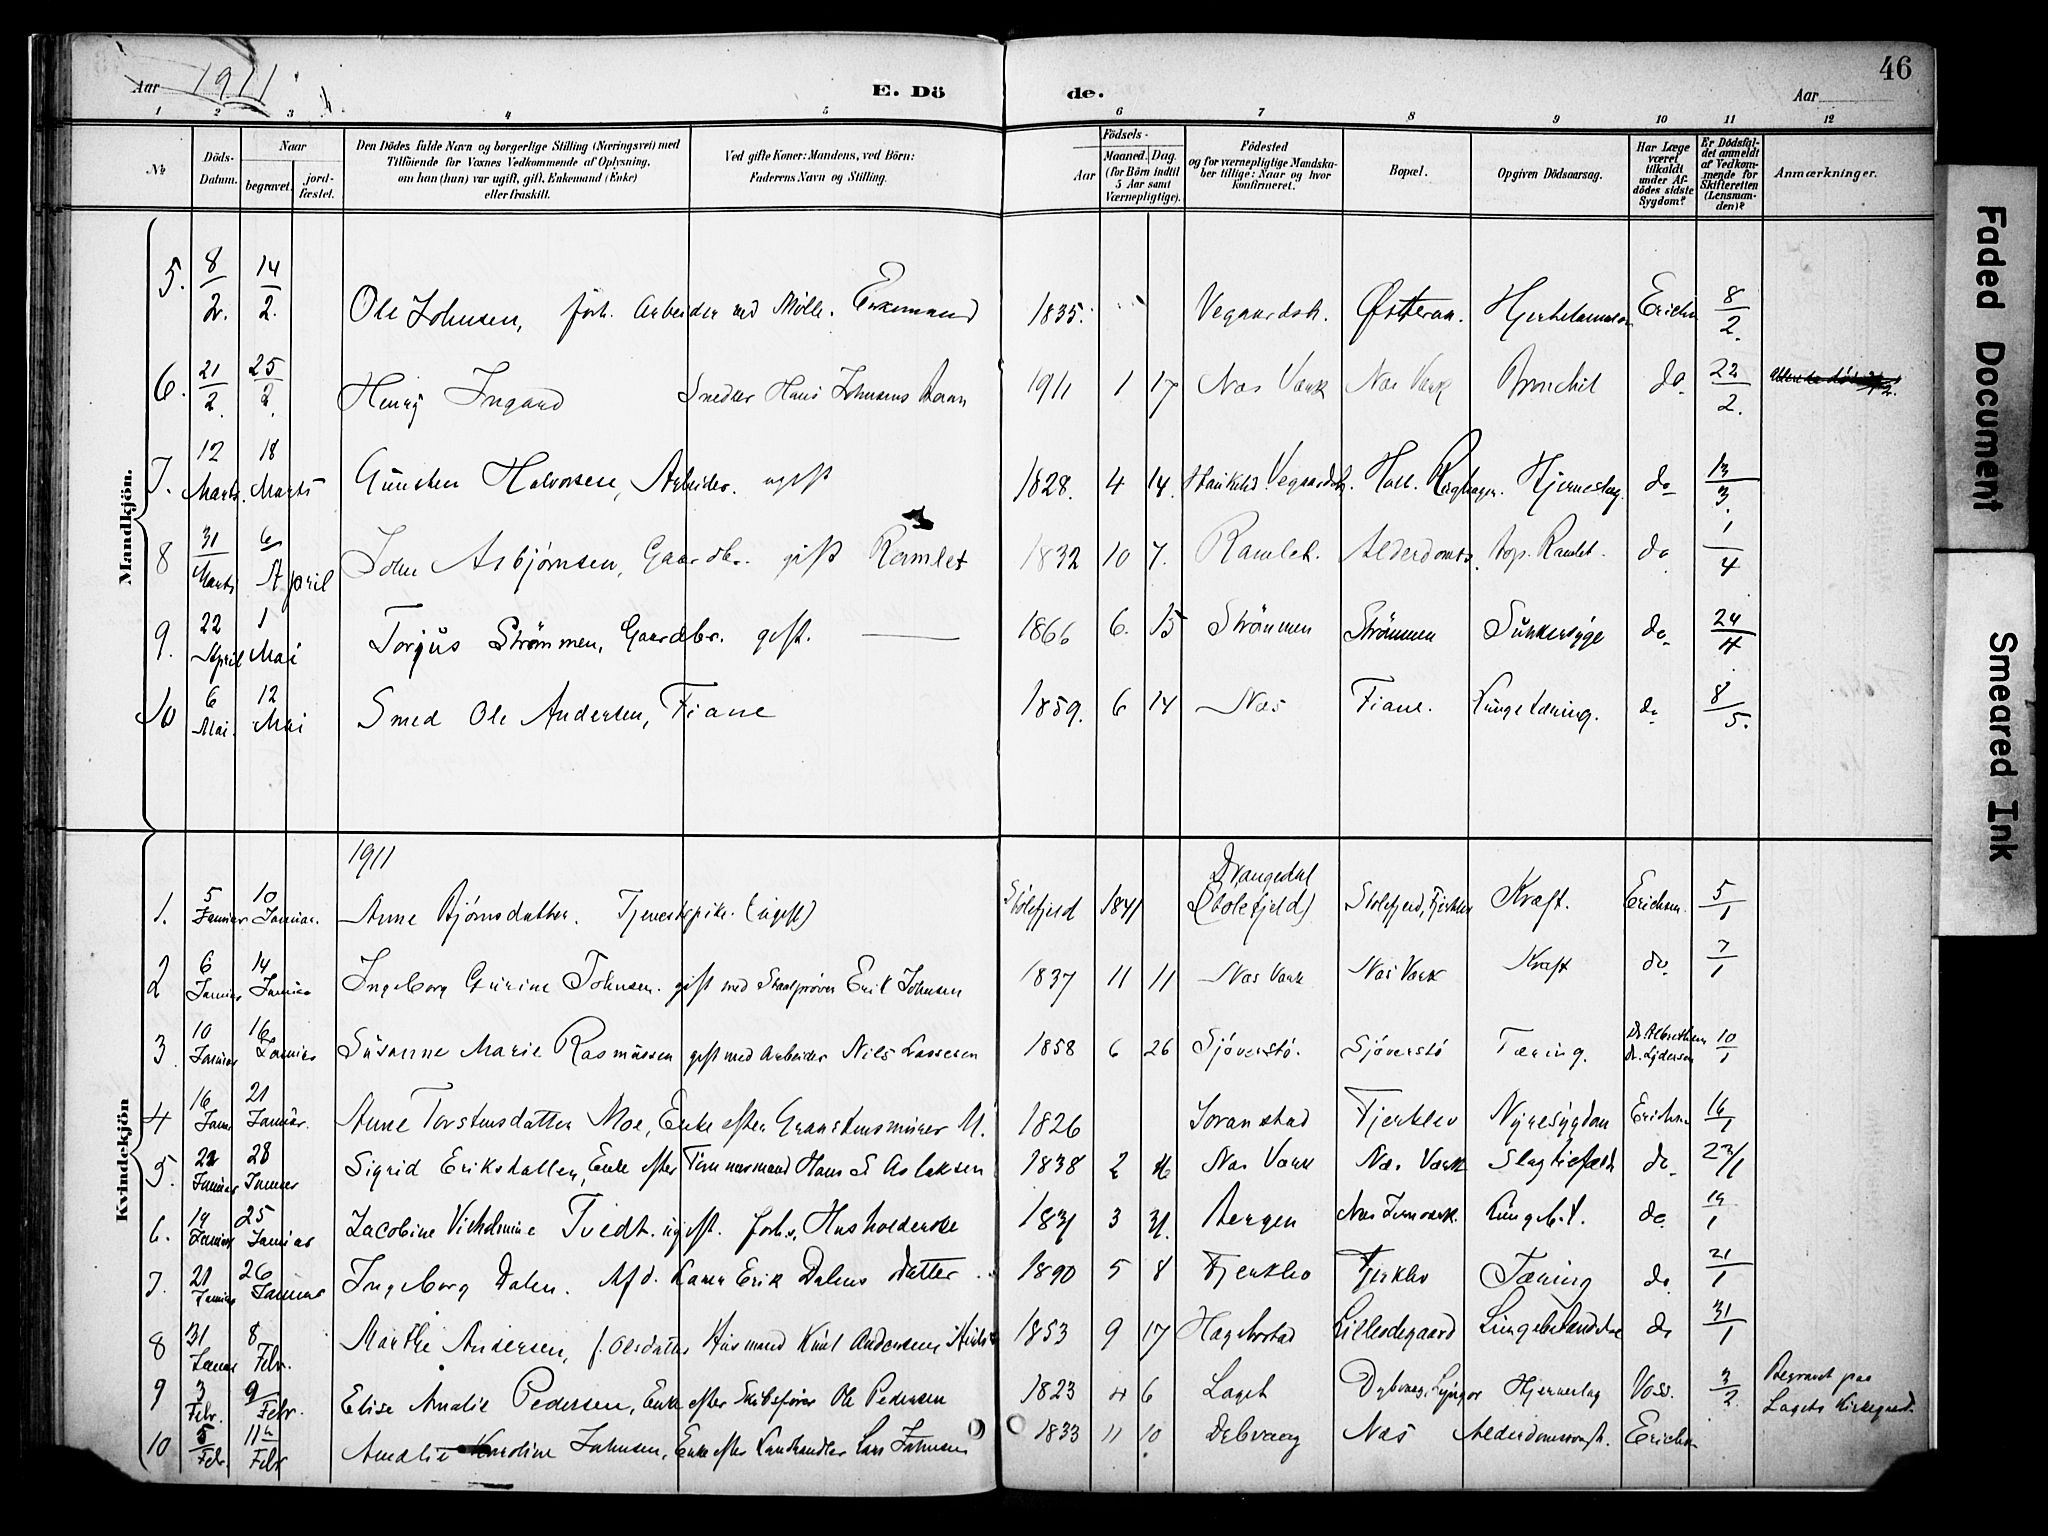 46
Aar 1911
E. Döde.
Aar
1 2 3 4 5 6 7 8 9 10 11 12
No.
Döds-Datum.
Naar
begravet.
jord-fæstet.
Den Dödes fulde Navn og borgerlige Stilling (Næringsvei) med
Tilföiende for Voxnes Vedkommende af Oplysning,
om han (hun) var ugift, gift, Enkemand (Enke)
eller fraskilt.
Ved gifte Koner: Mandens, ved Börn:
Faderens Navn og Stilling.
Födsels-
Aar
Maaned. Dag.
(for Börn indtil
5 Aar samt
Værnepligtige).
Födested
og for værnepligtige Mandska-
ber tillige: Naar og hvor
konfirmeret.
Bopæl.
Opgiven Dödsaarsag.
Har Læge
været
tilkaldt
under Af-
dödes sidste
Sygdom?
Er Dödsfal-
det anmeldt
af Vedkom-
mende for
Skifteretten
(Lensman-
den)?
Anmærkninger.
Mandkjön.
5. 8/2. 14/2. Ole Johnsen, forh. Arbeider ved Mölle. Enkemand 1835. Vegaardsh. Østeraa. 8/2.
6. 21/2. 25/2. Henry Ingard Hans Johnsens 1911 1 17 Næs Værk Næs Værk Bronchit do. 22/2.
7. 12 Marts. 18 Marts Gunsten Halvorsen, Arbeider. ugift 1828. 4 14. Vegaardsh. Hjerneslag. do 13/3.
8 31 Marts 6 April John Asbjørnsen, Gaardbr. gift Ramlet 1832 10 7. Ramlet. Alderdoms. do 1/4
9. 22 April 1 Mai Torjus Strömmen, Gaardbr. gift. 1866 6. 15 Strömmen Strömmen Sukkersyge do. 24/4
10 6 Mai. 12 Mai Smed Ole Andersen, Fiane 1859. 6 14 Næs Fiane. Lungetæring. do 8/5.
Kvindekjön
1911
1. 5 Januar 10 Januar. Anne Bjørnsdatter. Tjenestepike. (ugift) Stolefjeld 1841 Drangedal (Stolefjeld) Stolefjeld, Fjerklev Kræft. Erichsen. 5/1
2 6 Januar 14 Januar Ingeborg Gurine Johnsen. gift med Staalprøver Erik Johnsen 1837 11 11 Næs Værk Næs Værk Kræft do. 7/1
3. 10 Januar 16 Januar Susanne Marie Rasmussen gift med Arbeider Nils Lassesen 1858 6 26 Sjöverstö. Sjöverstö Tæring. 10/1
4 16 Janu 21 Januar. Anne Torstensdatter Moe, Enke efter M. 1826 Fjerklev Nyresygdom Erichsen 16/1
5. 28 Januar Sigrid Eriksdatter, Enke efter Tømmermand Hans S Aslaksen 1838 2 Næs Værk Næs Værk do. 23/1
6. 19 Januar 25 Januar Jacobine Vilhelmine Tvedt. ugift. forh. Husholderske 1831 3 31. Bergen Næs Jernværk. Lungebet. do. 19/1
7. 21 Januar 26 Januar Ingeborg Dalen. Afd. Erik Dalens datter 1890 5 8 Fjerklev Fjerklev Tæring do 21/1
8 31 Januar 8 Febr. Marthe Andersen, f. Olsdatter Husmand Knut Andersens Hustru 1853 9 17 Hagelstad Lilledegaard Lungebetændelse do 31/1
9 3 Febr. 9 Febr. Elise Amalie Pedersen, Enke efter Skibsfører Ole Pedersen 1823 4 6 Laget Dybvaag, Lyngør Hjerneslag Voss. 3/2 Begravet paa Lagets Kirkegaard.
10 5 Febr. 11 Febr Amalie Karoline Johnsen, Enke efter Landhandler Lars Johnsen 1833 11 10 Debvaag Næs Erichsen
Faded Document
Smeared Ink